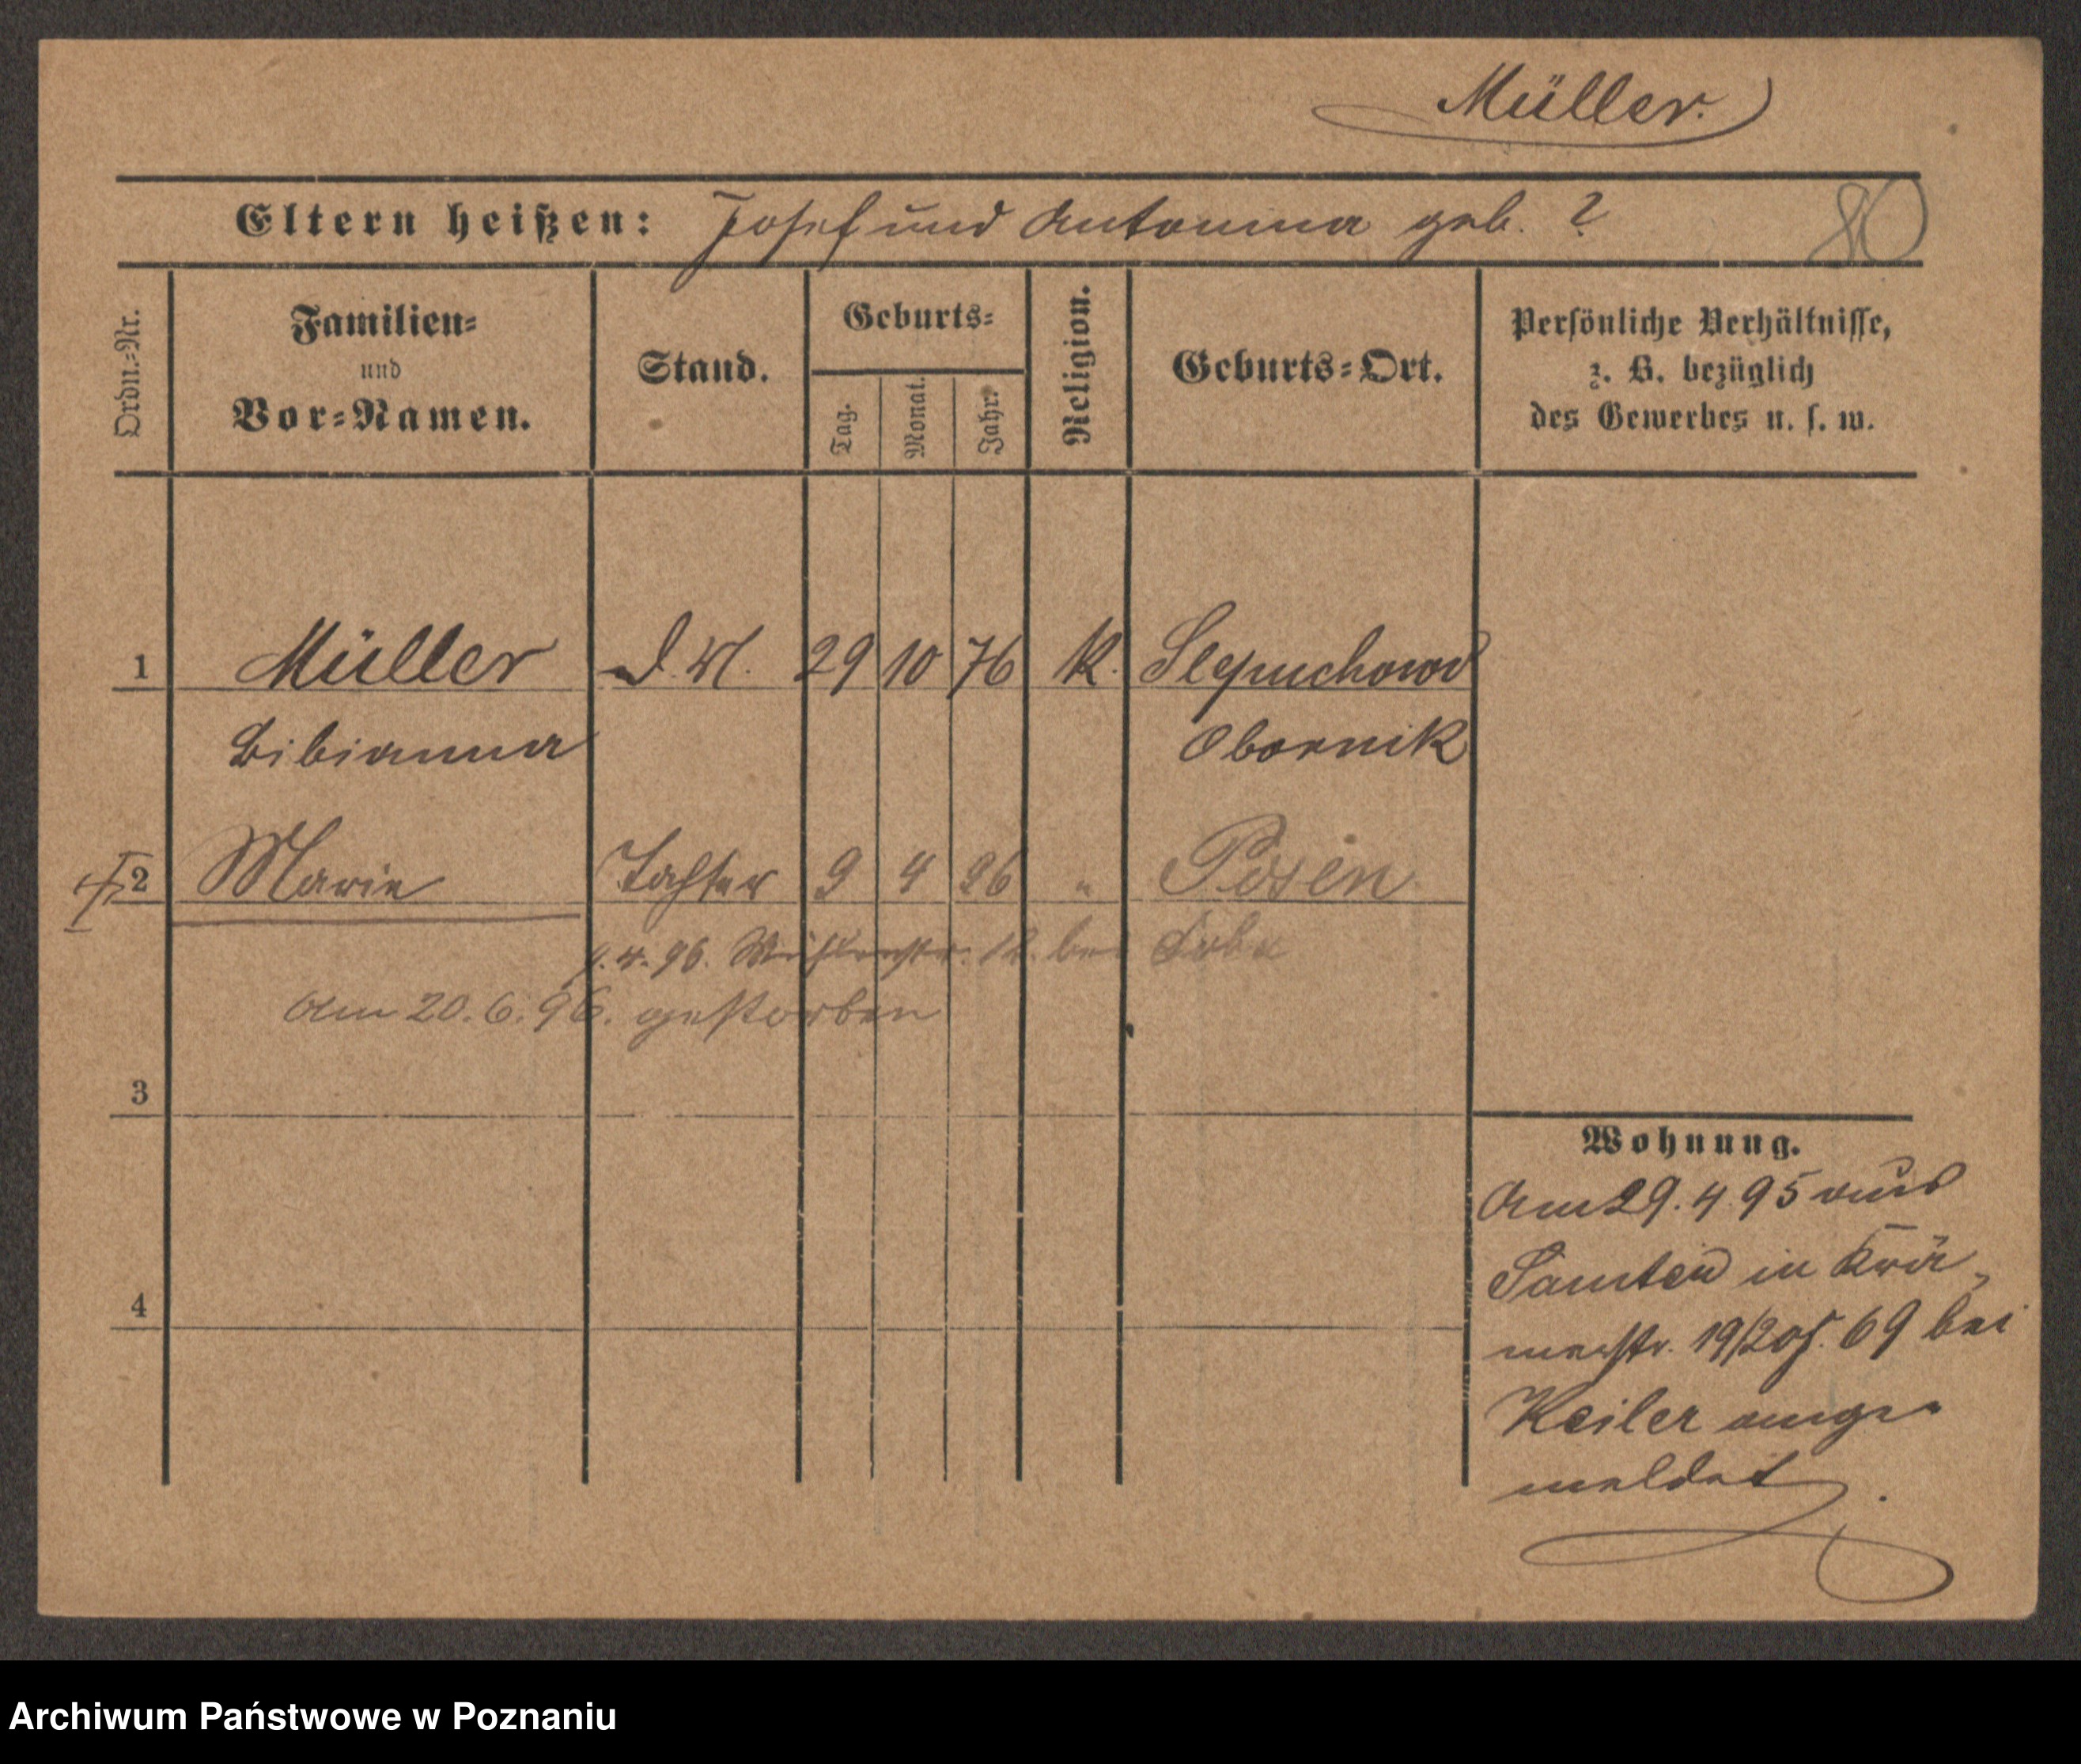 Müller.
Eltern heißen: Josef und Antonina geb. ?
80
Ordn.=Nr.
Familien=
und
Vor=Namen.
Stand.
Geburts=
Tag.
Monat.
Jahr.
Religion.
Geburts=Ort.
Persönliche Verhältnisse,
z. B. bezüglich
des Gewerbes u. s. w.
1 Müller d. M. 29 10 76 K. Slepuchowo
Bibianna Obornik
2 Marie Tochter 9 4 96 " Posen
4. 96. 12. bei
Am 20. 6. 96. gestorben
3
4
Wohnung.
Am 29. 4. 95 aus
Samter in Krä-
merstr. 19/20 f. 69 bei
Keiler ange-
meldet.
Archiwum Państwowe w Poznaniu